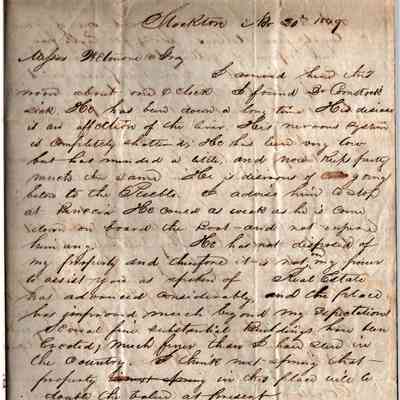 Stockton Nov 20th 1849
Messrs Wetmore & Gray
I arrived here this
noon about one O clock I found Dr Comstock
sick He has been down a long time His disease
is an affection of the liver His nervous system
is completely shattered; He has been very low
but has mended a little, and now keeps pretty
much the same He is desirous of going
below to the Pueblo. I advise him to stop
at Benecia He cannot as weak as he is come
down on board the boat and not expose
him any. He has not disposed of
my property and therefore it is not in my power
to assist you as spoken of Real Estate
has advanced considerably and the place
has improved much beyond my expectations
Several fine substantial Buildings have been
Erected, much finer than I have seen in
the Country. I think next spring that
property in this place will to
double the value at present